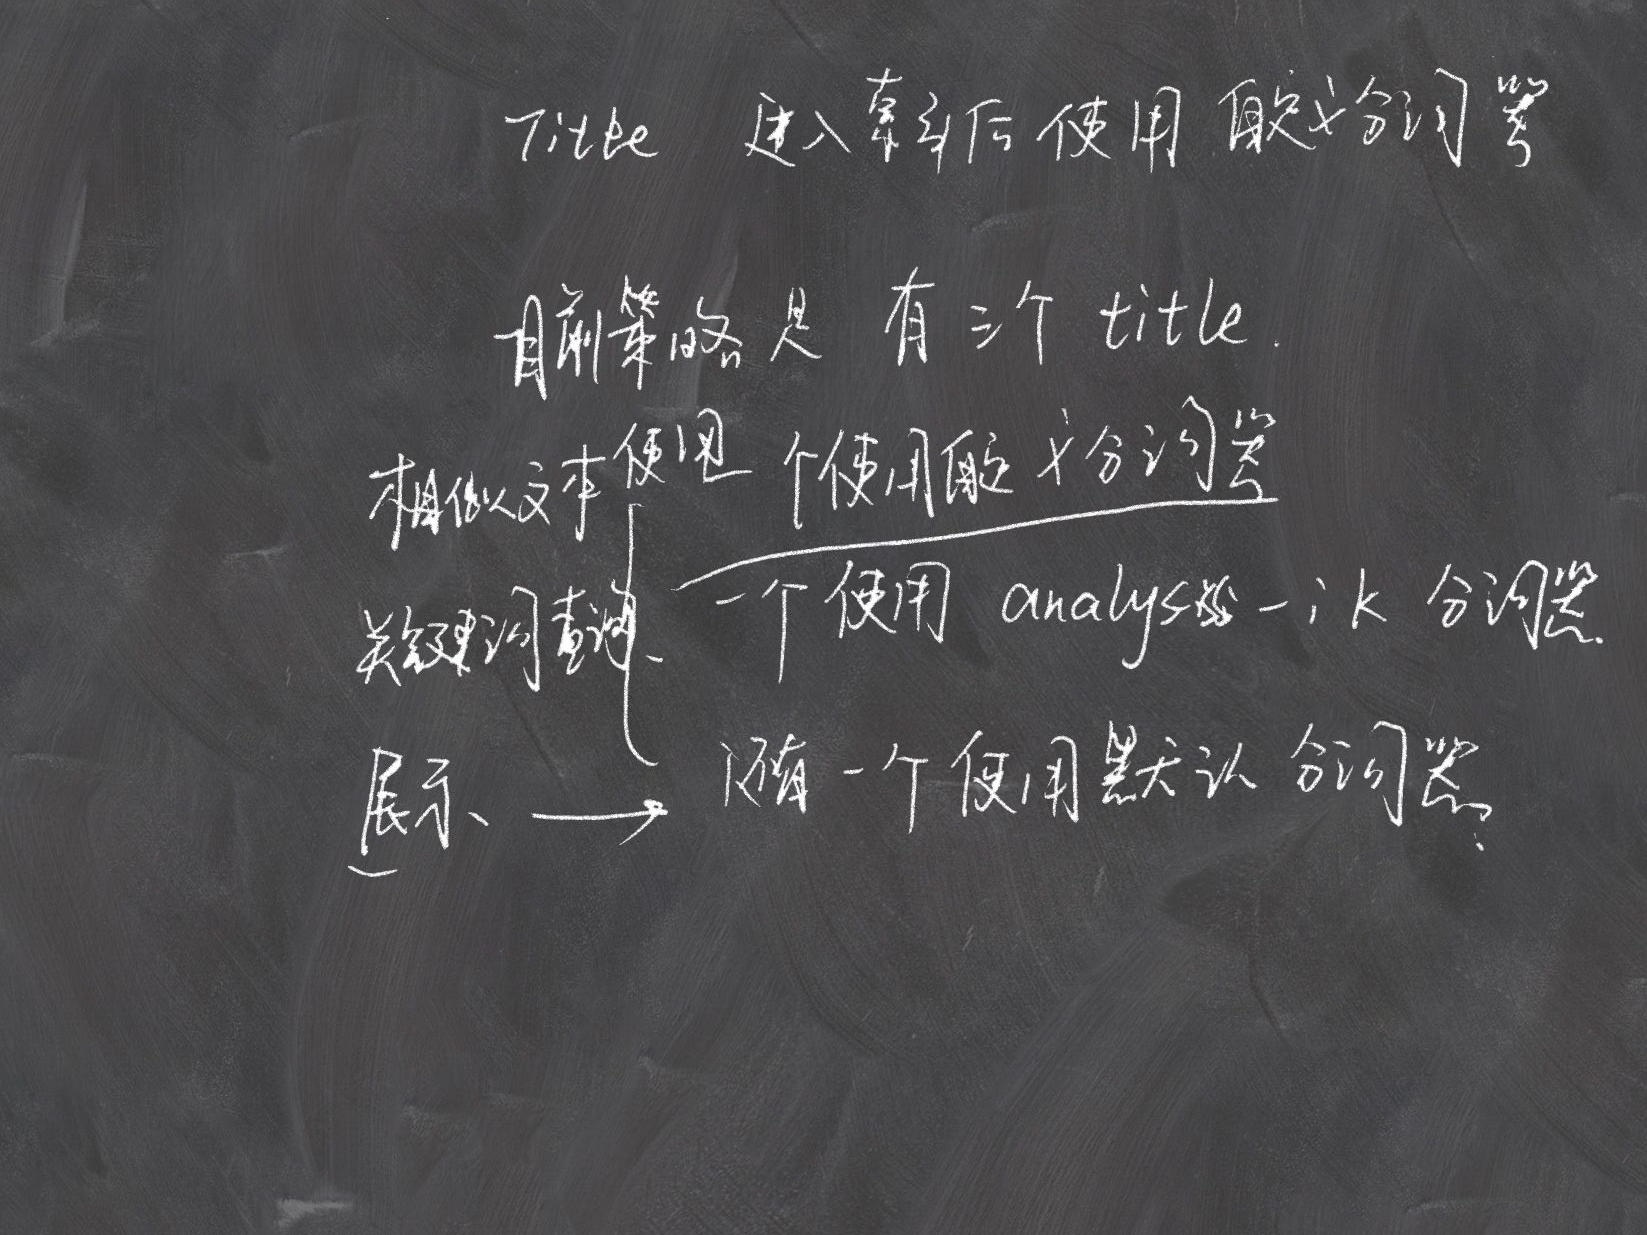 Title 进入索引后使用自定义分词器
目前策略是 有三个 title.
相似文本使用 一个使用自定义分词器
关键词查询、 一个使用 analysis-ik 分词器
展示、 → 还有一个使用默认分词器